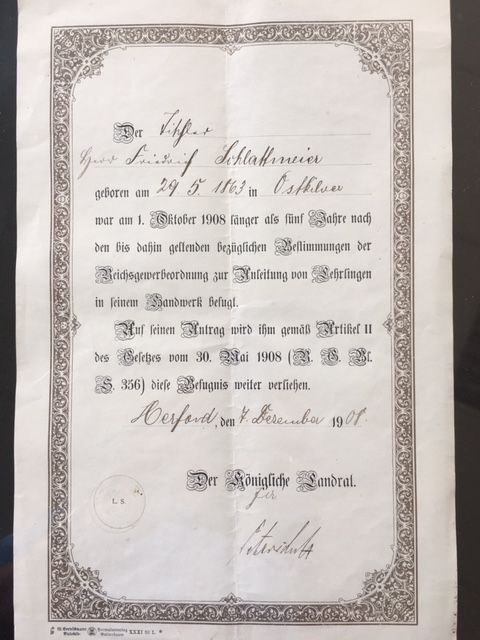 Der Tischler
Herr Friedrich Schlattmeier
geboren am 29 5. 1863 in Ostkilver
war am 1. Oktober 1908 länger als fünf Jahre nach
den bis dahin geltenden bezüglichen Bestimmungen der
Reichsgewerbeordnung zur Anleitung von Lehrlingen
in seinem Handwerk befugt.
Auf seinen Antrag wird ihm gemäß Artikel II
des Gesetzes vom 30. Mai 1908 (R. G. Bl.
S. 356) diese Befugnis weiter verliehen.
Herford, den 7. Dezember 1908.
Der Königliche Landrat.
L. S.
XXXI